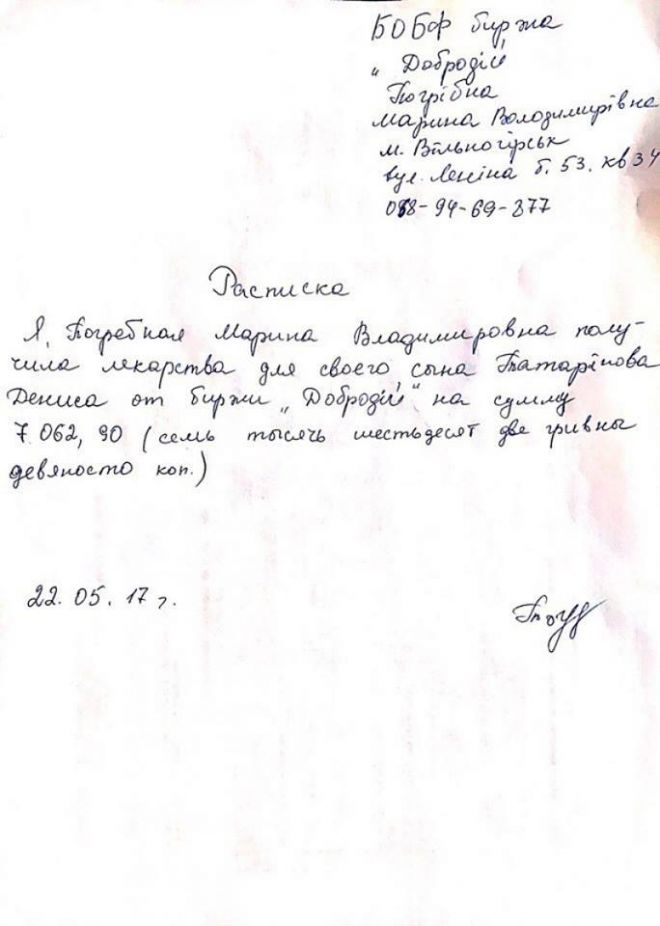 БОБФ биржа
„Добродій
Погрібна
Марина Володимирівна
м. Вільногірськ
вул. Леніна б. 53. кв 34
098-94-69-377
Расписка
Я, Погребная Марина Владимировна полу-
чила лекарства для своего сына Татарінова
Дениса от биржи „Добродій" на сумму
7 062, 90 (семь тысячь шестьдесят две гривны
девяносто коп.)
22. 05. 17 г.